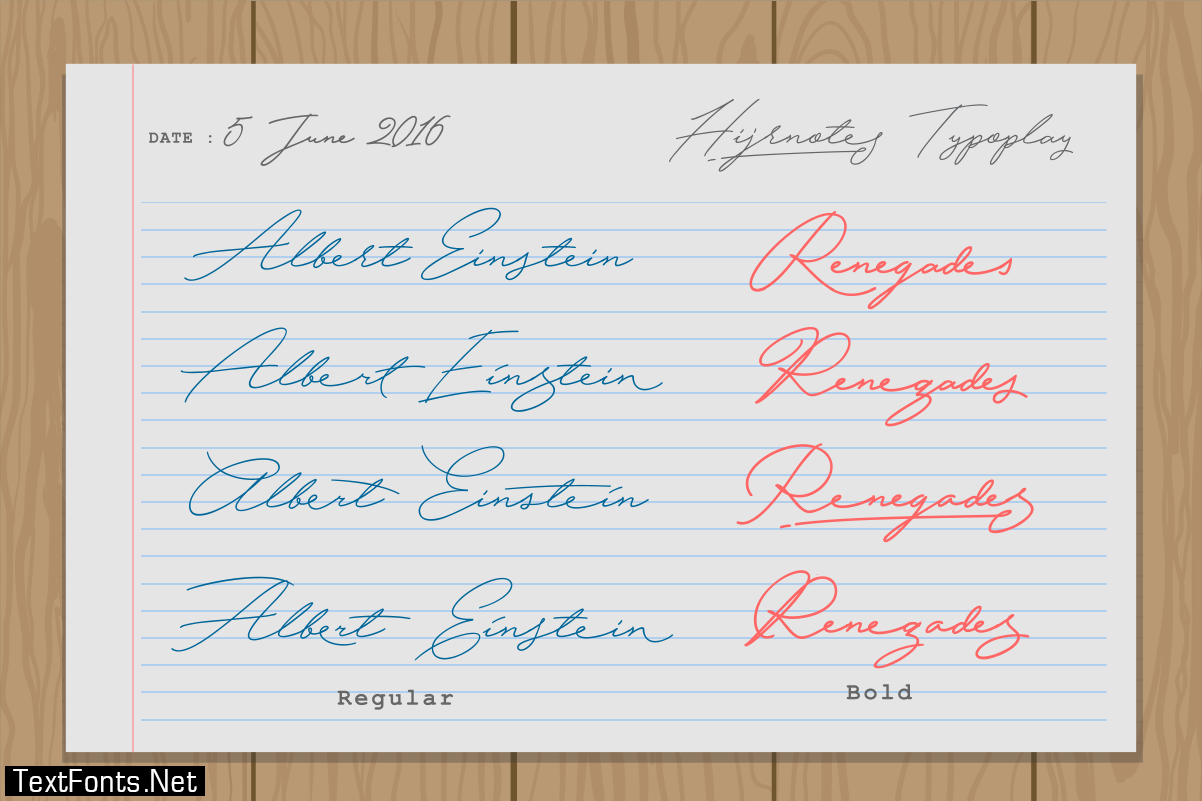 DATE : 5 June 2016 Hijrnotes Typoplay
Albert Einstein Renegades
Albert Einstein Renegades
Albert Einstein Renegades
Albert Einstein Renegades
Regular Bold
TextFonts.Net